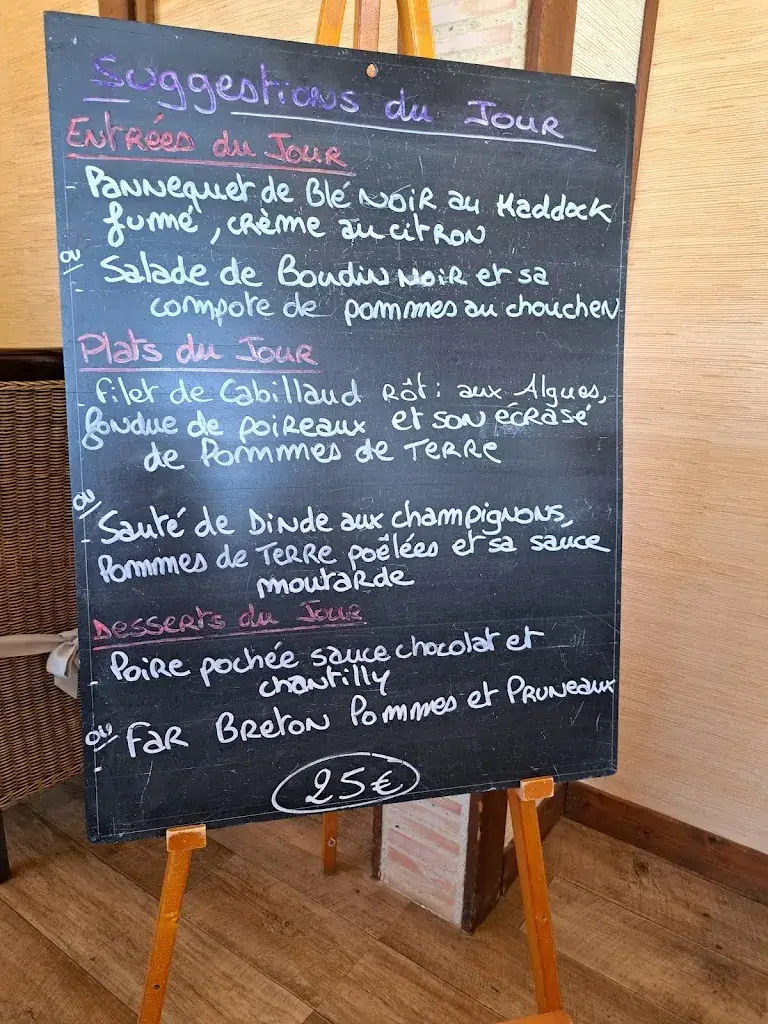 Suggestions du Jour
Entrées du Jour
- Pannequet de Blé Noir au Haddock
fumé, crème au citron
ou
- Salade de Boudin noir et sa
compote de pommes au chouchen
Plats du Jour
- filet de Cabillaud Rôti aux Algues,
fondue de poireaux et son écrasé
de Pommes de Terre
ou
- Sauté de Dinde aux champignons,
Pommes de Terre poêlées et sa sauce
moutarde
Desserts du Jour
- Poire pochée sauce chocolat et
chantilly
ou
- Far Breton Pommes et Pruneaux
25€